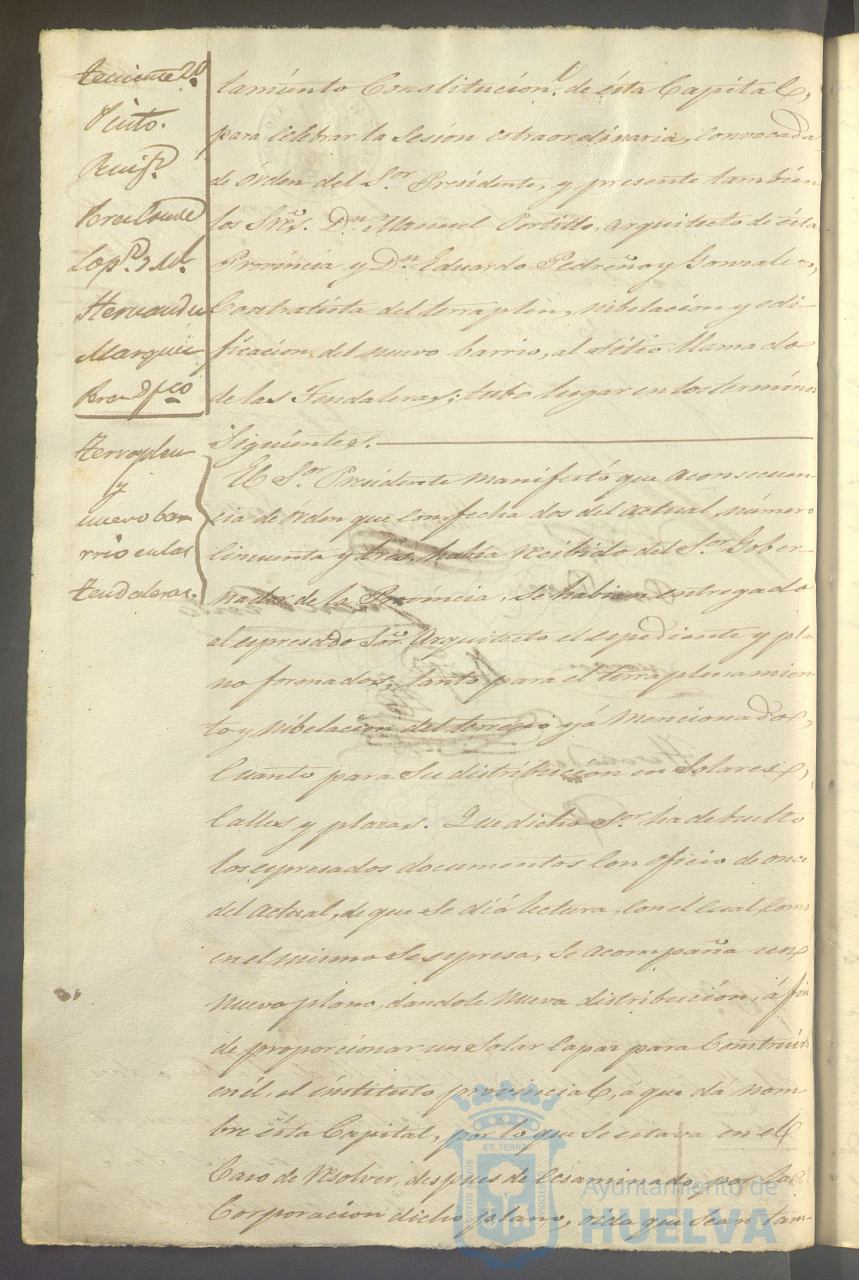 Teniente 2º
Pinto.
Hernandez
Marquez
tamiento Constitucionl. de ésta Capital,
para celebrar la Sesion estraordinaria, convocada
de órden del Sor. Presidente, y presente tambien
los Sres. Dn. Manuel Portillo, arquitecto de ésta
Provincia y Dn. Eduardo Pedreño y Gonzalez,
Contratista del terraplen, nibelacion y edi-
ficacion del nuevo barrio, al sitio llamado
de las Tendaleras; tubo lugar en los términos
Siguientes.
Terraplen
y
nuevo bar
rrio en las
tendaleras.
El Sor. Presidente manifestó que a consecuen-
cia de órden que con fecha dos del actual, número
Cincuenta y tres, habia recibido del Sor. Gober-
nador de la Provincia, se habian entregado
al espresado Sor. Arquitecto el espediente y pla
no formados, tanto para el terraplenamien
to y nibelacion del terreno yá mencionado,
Cuanto para su distribucion en Solares,
Calles y plazas. Que dicho Sor. ha debuelto
los espresados documentos con oficio de once
del actual, de que se dió lectura, con el cual, como
en el mismo se espresa, se acompaña un
nuevo plano, dandole nueva distribucion, á fin
de proporcionar un Solar capaz para Construir
en él, el instituto provincial, á que dá nom
bre ésta Capital, por lo que se estava en el
Caso de resolver, despues de ecsaminado, por la
Corporacion dicho plano, oida que sean tam-
Ayuntamiento de
HUELVA